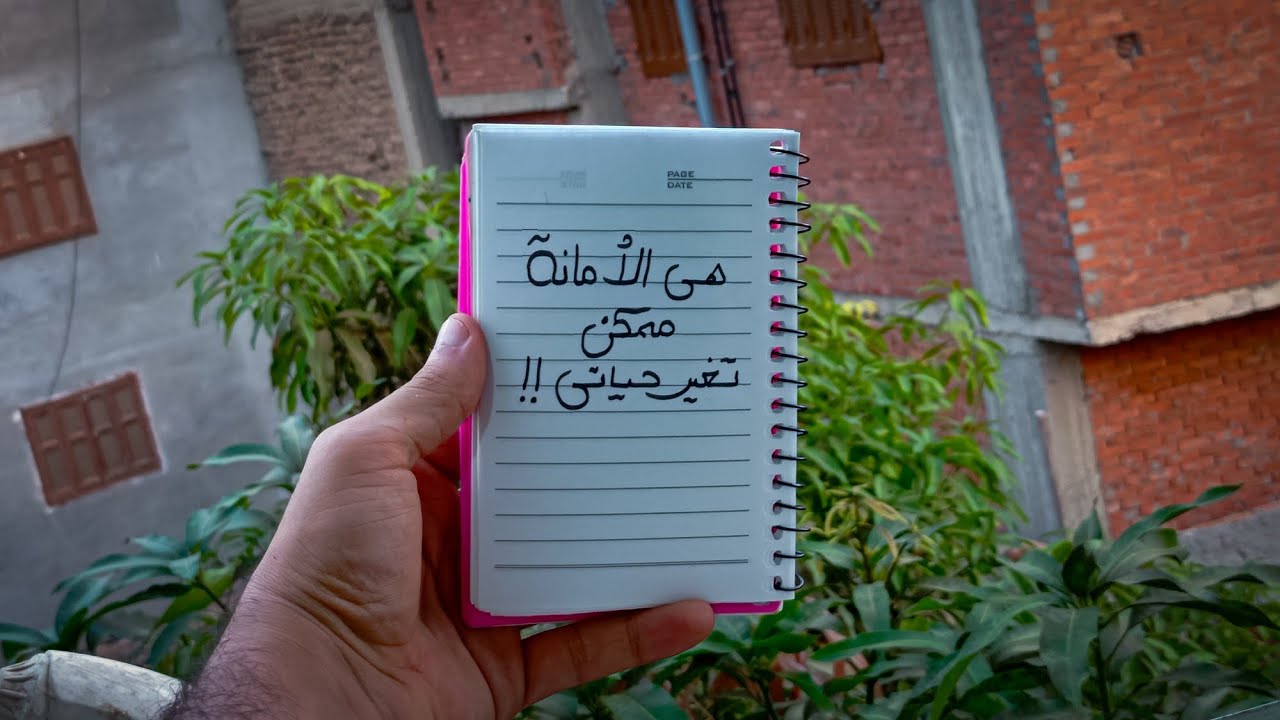 PAGE
DATE
هى الأمانة
ممكن
تغير حياتى !!